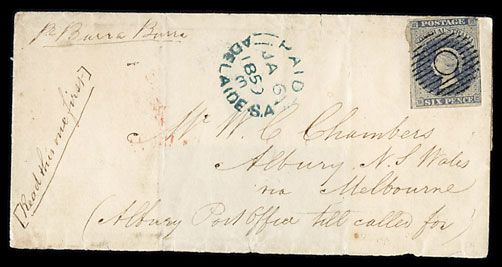 Pr Burra Burra
PAID
JA 6
1857
ADELAIDE.S.A
POSTAGE
SIX PENCE
[Read this one first]
Mr W. C. Chambers
Albury N. S Wales
via Melbourne
(Albury Post Office till called for)